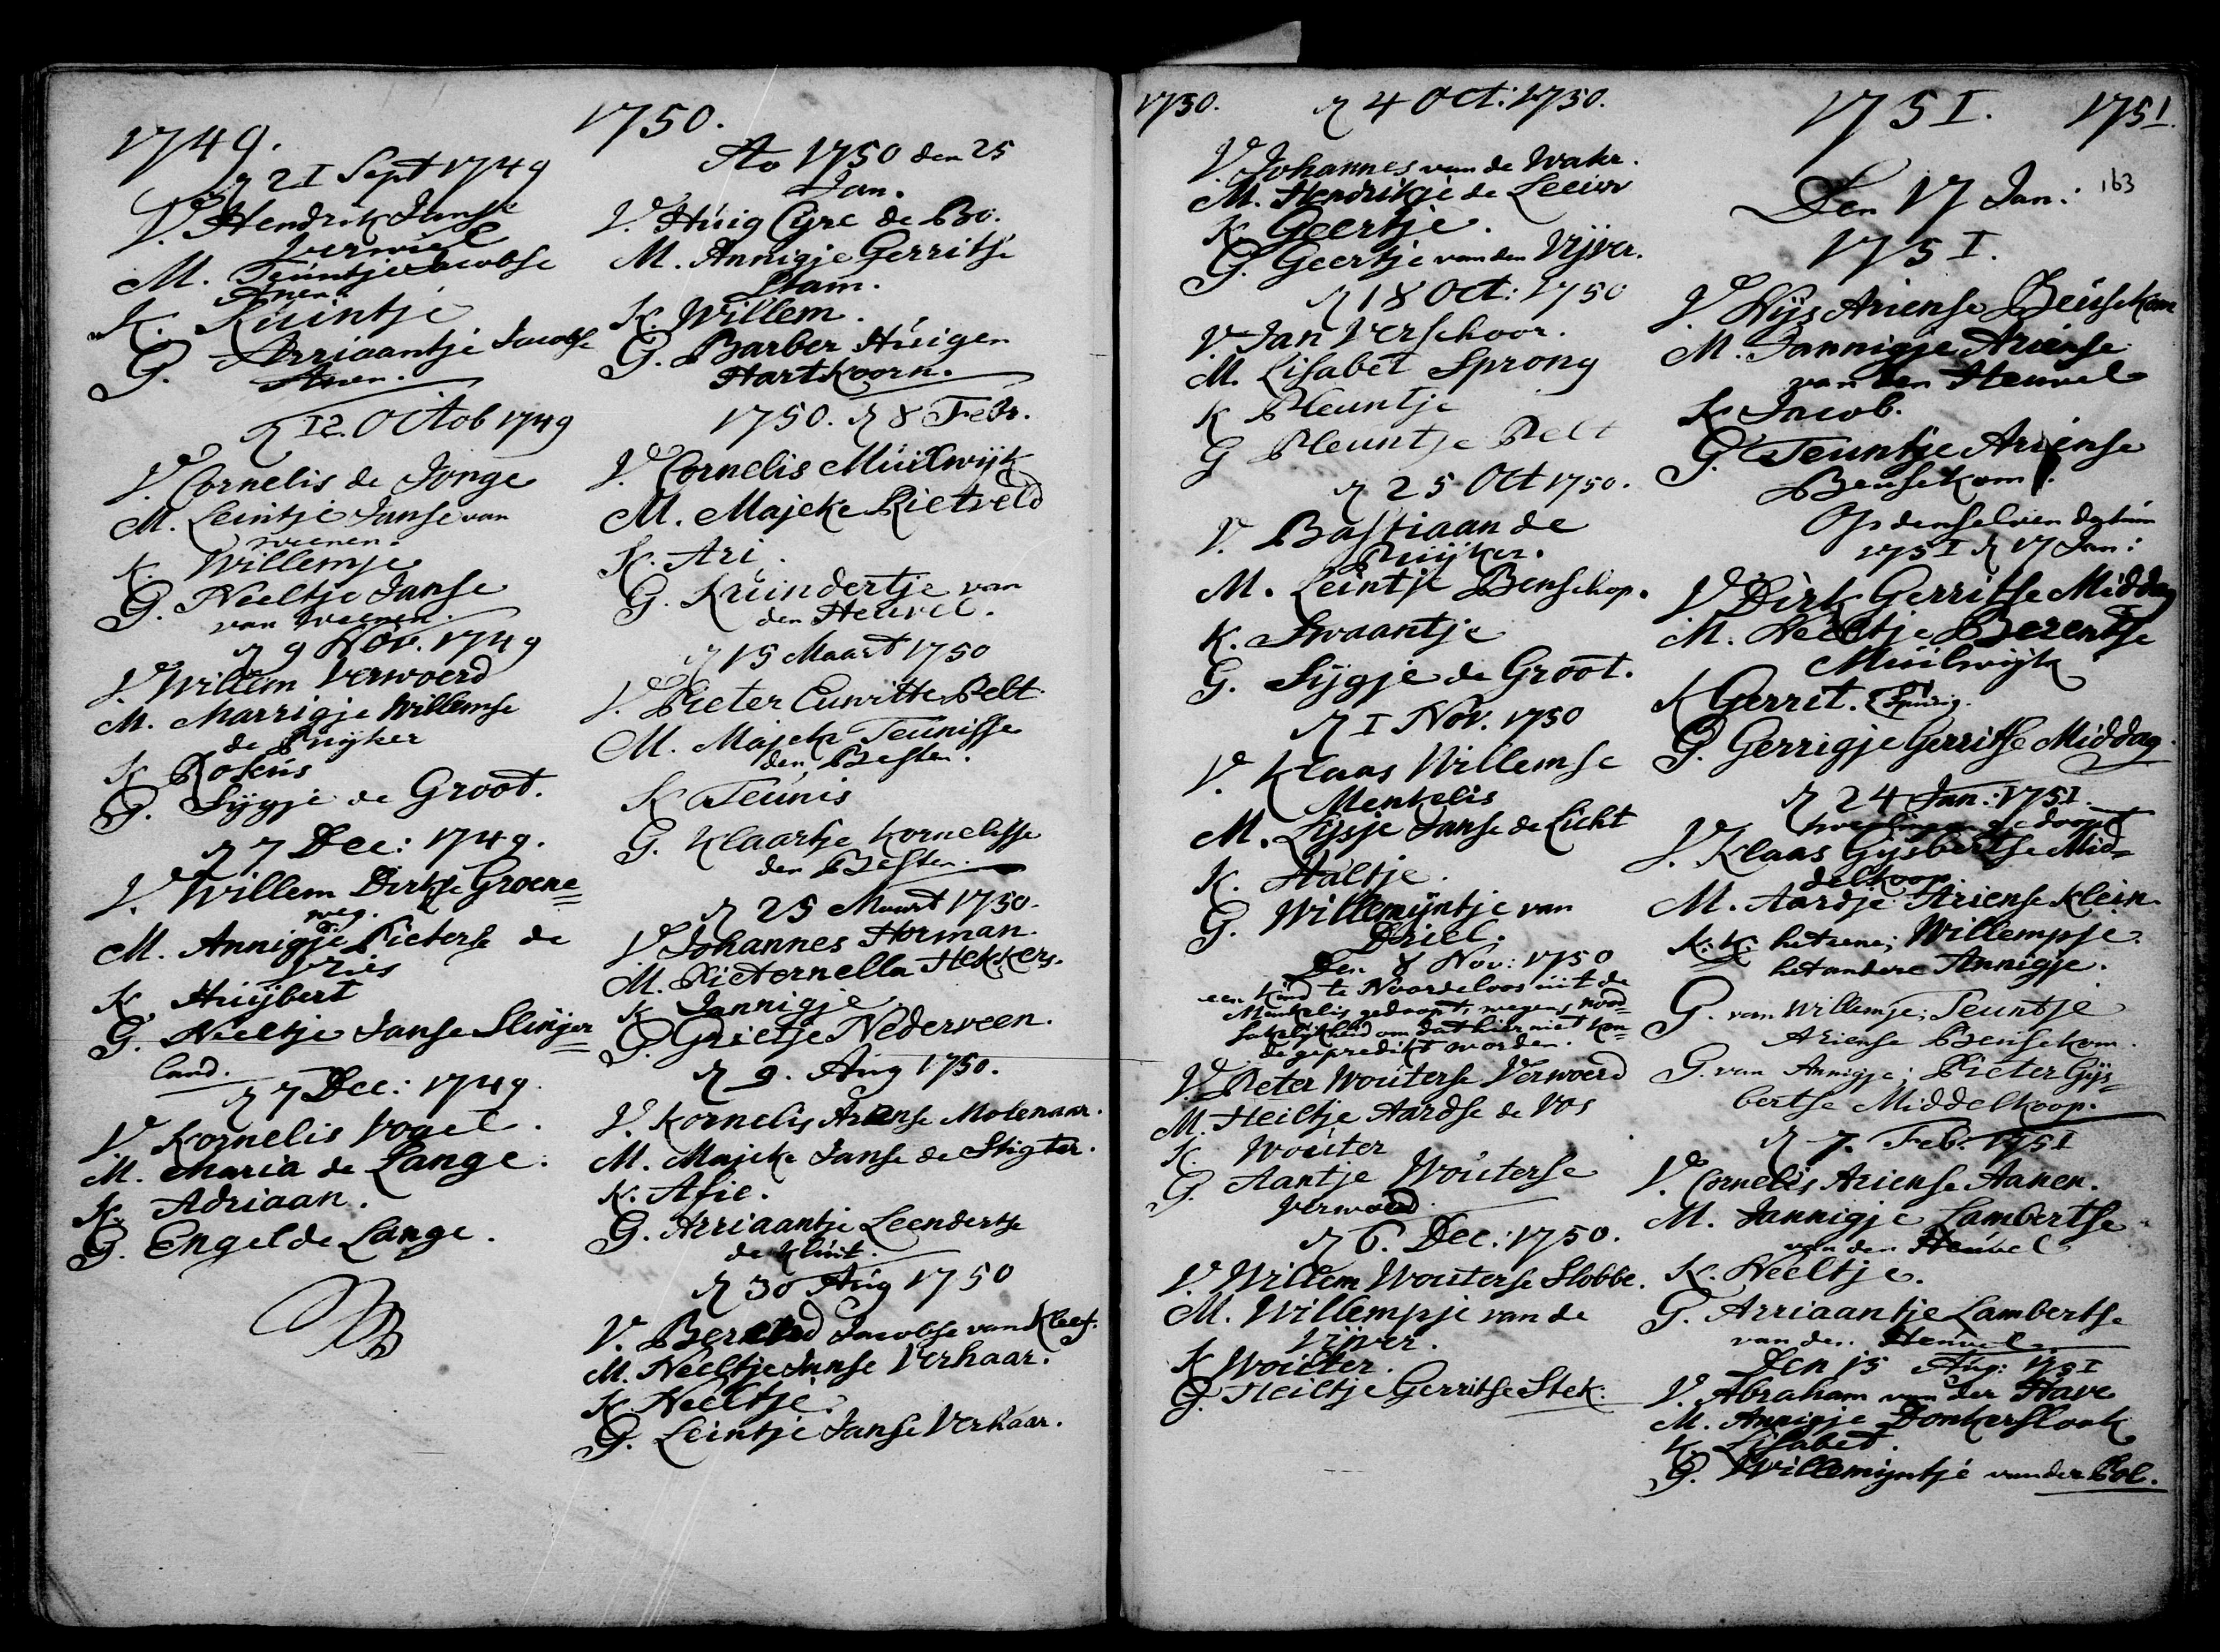 1749.
Dr 21 Sept 1749
V. Hendrik Janse
M. Teuntje Jacobse
Anen.
K. Kuintje
G. Arriaantje Jacobse
Anen.
Dr 12. Octob 1749
V. Cornelis de Jonge
M. Leintje Janse van
weenen.
K. Willempje
G. Neeltje Janse
van weenen.
Dr 9 Nov. 1749
V. Willem Verwoerd
M. Marrigje Willemse
de Kuijker
K. Rokus
G. Sijgje de Groot.
Dr 7 Dec: 1749.
V. Willem Dirkse Groene=
weg.
M. Annigje Pieterse de
Vries
K. Huijbert
G. Neeltje Janse Slinger=
land.
Dr 7 Dec: 1749.
V. Kornelis Vogel.
M. Maria de Lange.
K. Adriaan.
G. Engel de Lange.
1750.
Ao 1750 den 25
Jan.
V. Huig Cyre de Bo.
M. Annigje Gerritse
Stam.
K. Willem.
G. Barber Huigen
Hartkoorn.
1750. Dr 8 Febr.
V. Cornelis Muilwijk
M. Majeke Rietveld
K. Ari.
G. Kruindertje van
den Heuvel.
Dr 15 Maart 1750
V. Pieter Euwitte Pelt
M. Majeke Teunisse
den Besten.
K. Teunis
G. Klaartje Kornelisse
den Besten.
Dr 25 Maart 1750.
V. Johannes Horman.
M. Pieternella Hekkers.
K. Jannigje
G. Grietje Nederveen.
Dr 9. Aug 1750.
V. Kornelis Ariense Molenaar.
M. Majeke Janse de Stigter.
K. Afie.
G. Arriaantje Leendertse
de Kluit.
Dr 30 Aug 1750
V. Berend Jacobse van Kleef.
M. Neeltje Janse Verhaar.
K. Neeltje.
G. Leintje Janse Verhaar.
1750.
Dr 4 Oct: 1750.
V. Johannes van de Water.
M. Hendrikje de Leeuw
K. Geertje.
G. Geertje van den Vijver.
Dr 18 Oct: 1750
V. Jan Verschoor.
M. Lisabet Sprong
K Pleuntje
G Pleuntje Pelt
Dr 25 Oct 1750.
V. Bastiaan de
Kuijker.
M. Leintje Benschop.
K. Swaantje
G. Sijgje de Groot.
Dr 1 Nov. 1750
V. Klaas Willemse
Menkelis
M. Lijsje Janse de Licht
K. Aaltje.
G. Willemijntje van
Driel.
Den 8 Nov: 1750
een kind te Noordeloos uit de
Minkelis gedoopt, wegens nood=
sakelijkheid om dat hier niet kon=
de gepredikt worden.
V. Peter Wouterse Verwoerd
M. Heiltje Aardse de Vos
K. Wouter
G. Aantje Wouterse
Verwoerd.
Dr 6. Dec: 1750.
V. Willem Wouterse Slobbe.
M. Willempje van de
Vijver.
K Wouter.
G. Heiltje Gerritse Stek.
1751. 1751.
163
Den 17 Jan:
1751.
V. Nijs Ariense Beusekom
M. Jannigje Ariense
van den Heuvel
K Jacob.
G. Teuntje Ariense
Beusekom.
Op denselven datum
1751 Dr 17 Jan:
V. Dirk Gerritse Middag
M. Neeltje Berentse
Muilwijk
K Gerrit.
G. Gerrigje Gerritse Middag.
Dr 24 Jan: 1751.
tweelingen gedoopt
V. Klaas Gijsbertse Mid=
delkoop.
M. Aardje Ariense Klein.
K. K. het eene; Willempje.
het andere Annigje.
G. van Willemje; Teuntje
Ariense Beusekom.
G. van Annigje; Pieter Gijs=
bertse Middelkoop.
Dr 7. Feb. 1751
V. Cornelis Ariense Aanen.
M. Jannigje Lambertse
van den Heuvel
K. Neeltje.
G. Arriaantje Lambertse
van den Heuvel.
Den 15 Aug: 1751
V. Abraham van der Have
M. Annigje Donkersloot
K. Lisabet.
G. Willemijntje van der Pol.